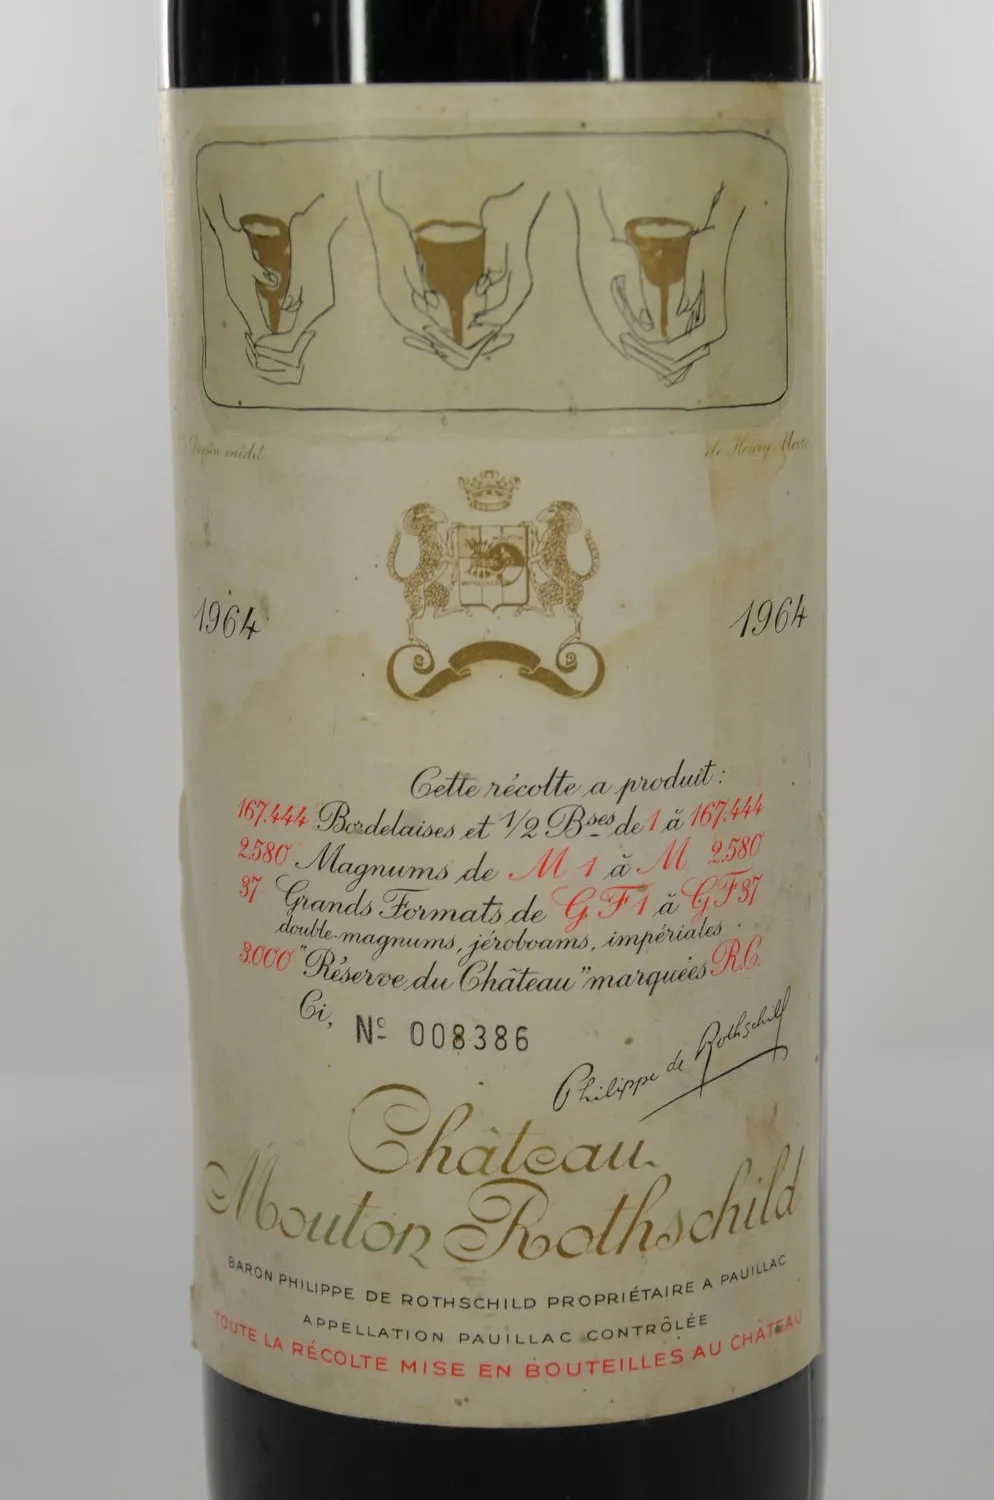 Dessin inédit
de Henry Moore
1964
1964
Cette récolte a produit :
167.444 Bordelaises et 1/2 Bses de 1 à 167.444
2.580 Magnums de M 1 à M 2.580
37 Grands Formats de G F 1 à G F 37
double-magnums, jéroboams, impériales
3.000 "Réserve du Château" marquées R.C.
Ci,
Nº 008386
Philippe de Rothschild
Château
Mouton Rothschild
BARON PHILIPPE DE ROTHSCHILD PROPRIÉTAIRE A PAUILLAC
APPELLATION PAUILLAC CONTRÔLÉE
TOUTE LA RÉCOLTE MISE EN BOUTEILLES AU CHÂTEAU